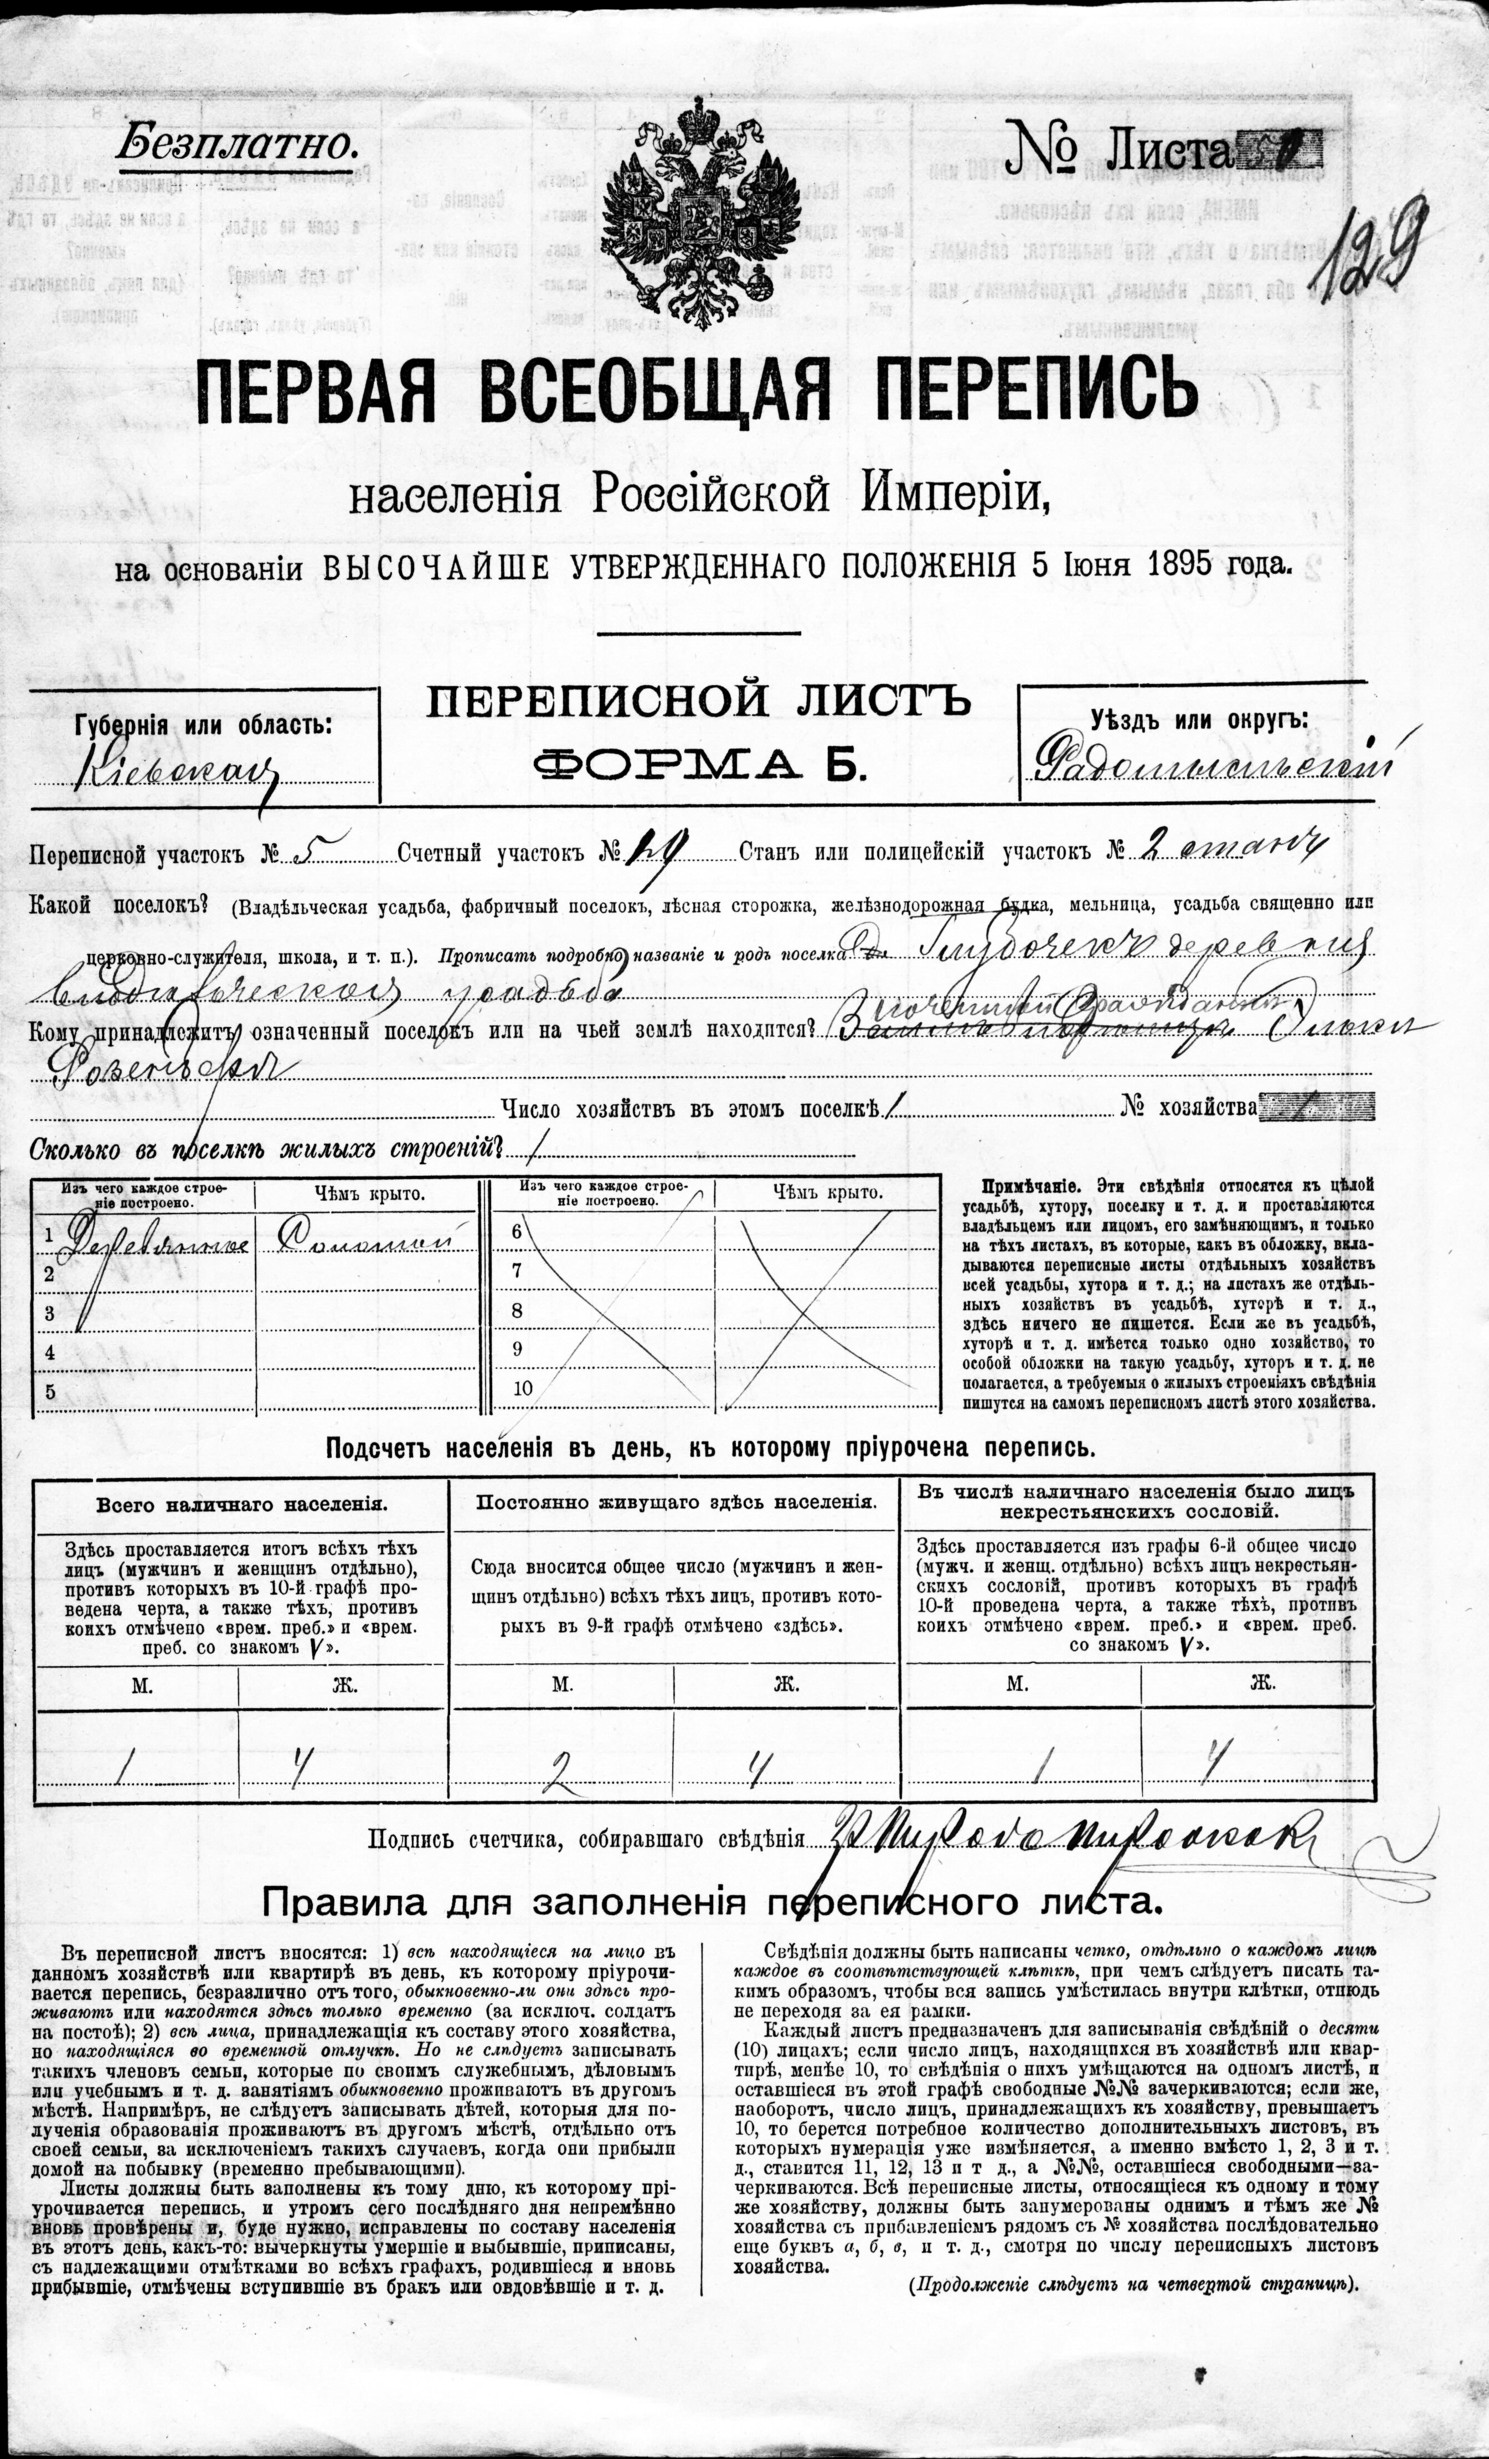 Безплатно.
№ Листа
129
ПЕРВАЯ ВСЕОБЩАЯ ПЕРЕПИСЬ
населенія Россійской Имперіи,
на основаніи ВЫСОЧАЙШЕ УТВЕРЖДЕННАГО ПОЛОЖЕНІЯ 5 Іюня 1895 года.
ПЕРЕПИСНОЙ ЛИСТЪ
ФОРМА Б.
Губернія или область:
Кіевская
Уѣздъ или округъ:
Радомысльскій
Переписной участокъ № 5 Счетный участокъ № 29 Станъ или полицейскій участокъ № 2 станъ
Какой поселокъ? (Владѣльческая усадьба, фабричный поселокъ, лѣсная сторожка, желѣзнодорожная будка, мельница, усадьба священно или
церковно-служителя, школа, и т. п.). Прописать подробно названіе и родъ поселка Глубочекъ деревня
владѣльческая усадьба
почетный гражданинъ
Кому принадлежитъ означенный поселокъ или на чьей землѣ находится?
Число хозяйствъ въ этомъ поселкѣ 1 № хозяйства 1
Сколько въ поселкѣ жилыхъ строеній? 1
Изъ чего каждое строе-
ніе построено.
Чѣмъ крыто.
Изъ чего каждое строе-
ніе построено.
Чѣмъ крыто.
1 Деревянное Соломой
2
3
4
5
6
7
8
9
10
Примѣчаніе. Эти свѣдѣнія относятся къ цѣлой
усадьбѣ, хутору, поселку и т. д. и проставляются
владѣльцемъ или лицомъ, его замѣняющимъ, и только
на тѣхъ листахъ, въ которые, какъ въ обложку, вкла-
дываются переписные листы отдѣльныхъ хозяйствъ
всей усадьбы, хутора и т. д.; на листахъ же отдѣль-
ныхъ хозяйствъ въ усадьбѣ, хуторѣ и т. д.,
здѣсь ничего не пишется. Если же въ усадьбѣ,
хуторѣ и т. д. имѣется только одно хозяйство, то
особой обложки на такую усадьбу, хуторъ и т. д. не
полагается, а требуемыя о жилыхъ строеніяхъ свѣдѣнія
пишутся на самомъ переписномъ листѣ этого хозяйства.
Подсчетъ населенія въ день, къ которому пріурочена перепись.
Всего наличнаго населенія.
Здѣсь проставляется итогъ всѣхъ тѣхъ
лицъ (мужчинъ и женщинъ отдѣльно),
противъ которыхъ въ 10-й графѣ про-
ведена черта, а также тѣхъ, противъ
коихъ отмѣчено «врем. преб.» и «врем.
преб. со знакомъ V».
М. Ж.
1 4
Постоянно живущаго здѣсь населенія.
Сюда вносится общее число (мужчинъ и жен-
щинъ отдѣльно) всѣхъ тѣхъ лицъ, противъ кото-
рыхъ въ 9-й графѣ отмѣчено «здѣсь».
М. Ж.
2 4
Въ числѣ наличнаго населенія было лицъ
некрестьянскихъ сословій.
Здѣсь проставляется изъ графы 6-й общее число
(мужч. и женщ. отдѣльно) всѣхъ лицъ некрестьян-
скихъ сословій, противъ которыхъ въ графѣ
10-й проведена черта, а также тѣхъ, противъ
коихъ отмѣчено «врем. преб.» и «врем. преб.
со знакомъ V».
М. Ж.
1 4
Подпись счетчика, собиравшаго свѣдѣнія
Правила для заполненія переписного листа.
Въ переписной листъ вносятся: 1) всѣ находящіеся на лицо въ
данномъ хозяйствѣ или квартирѣ въ день, къ которому пріурочи-
вается перепись, безразлично отъ того, обыкновенно-ли они здѣсь про-
живаютъ или находятся здѣсь только временно (за исключ. солдатъ
на постоѣ); 2) всѣ лица, принадлежащія къ составу этого хозяйства,
но находящіеся во временной отлучкѣ. Но не слѣдуетъ записывать
такихъ членовъ семьи, которые по своимъ служебнымъ, дѣловымъ
или учебнымъ и т. д. занятіямъ обыкновенно проживаютъ въ другомъ
мѣстѣ. Напримѣръ, не слѣдуетъ записывать дѣтей, которыя для по-
лученія образованія проживаютъ въ другомъ мѣстѣ, отдѣльно отъ
своей семьи, за исключеніемъ такихъ случаевъ, когда они прибыли
домой на побывку (временно пребывающими).
Листы должны быть заполнены къ тому дню, къ которому прі-
урочивается перепись, и утромъ сего послѣдняго дня непремѣнно
вновь провѣрены и, буде нужно, исправлены по составу населенія
въ этотъ день, какъ-то: вычеркнуты умершіе и выбывшіе, приписаны,
съ надлежащими отмѣтками во всѣхъ графахъ, родившіеся и вновь
прибывшіе, отмѣчены вступившіе въ бракъ или овдовѣвшіе и т. д.
Свѣдѣнія должны быть написаны четко, отдѣльно о каждомъ лицѣ
каждое въ соотвѣтствующей клѣткѣ, при чемъ слѣдуетъ писать та-
кимъ образомъ, чтобы вся запись умѣстилась внутри клѣтки, отнюдь
не переходя за ея рамки.
Каждый листъ предназначенъ для записыванія свѣдѣній о десяти
(10) лицахъ; если число лицъ, находящихся въ хозяйствѣ или квар-
тирѣ, менѣе 10, то свѣдѣнія о нихъ умѣщаются на одномъ листѣ, и
оставшіеся въ этой графѣ свободные №№ зачеркиваются; если же,
наоборотъ, число лицъ, принадлежащихъ къ хозяйству, превышаетъ
10, то берется потребное количество дополнительныхъ листовъ, въ
которыхъ нумерація уже измѣняется, а именно вмѣсто 1, 2, 3 и т.
д., ставится 11, 12, 13 и т д., а №№, оставшіеся свободными—за-
черкиваются. Всѣ переписные листы, относящіеся къ одному и тому
же хозяйству, должны быть занумерованы однимъ и тѣмъ же №
хозяйства съ прибавленіемъ рядомъ съ № хозяйства послѣдовательно
еще буквъ а, б, в, и т. д., смотря по числу переписныхъ листовъ
хозяйства.
(Продолженіе слѣдуетъ на четвертой страницѣ).